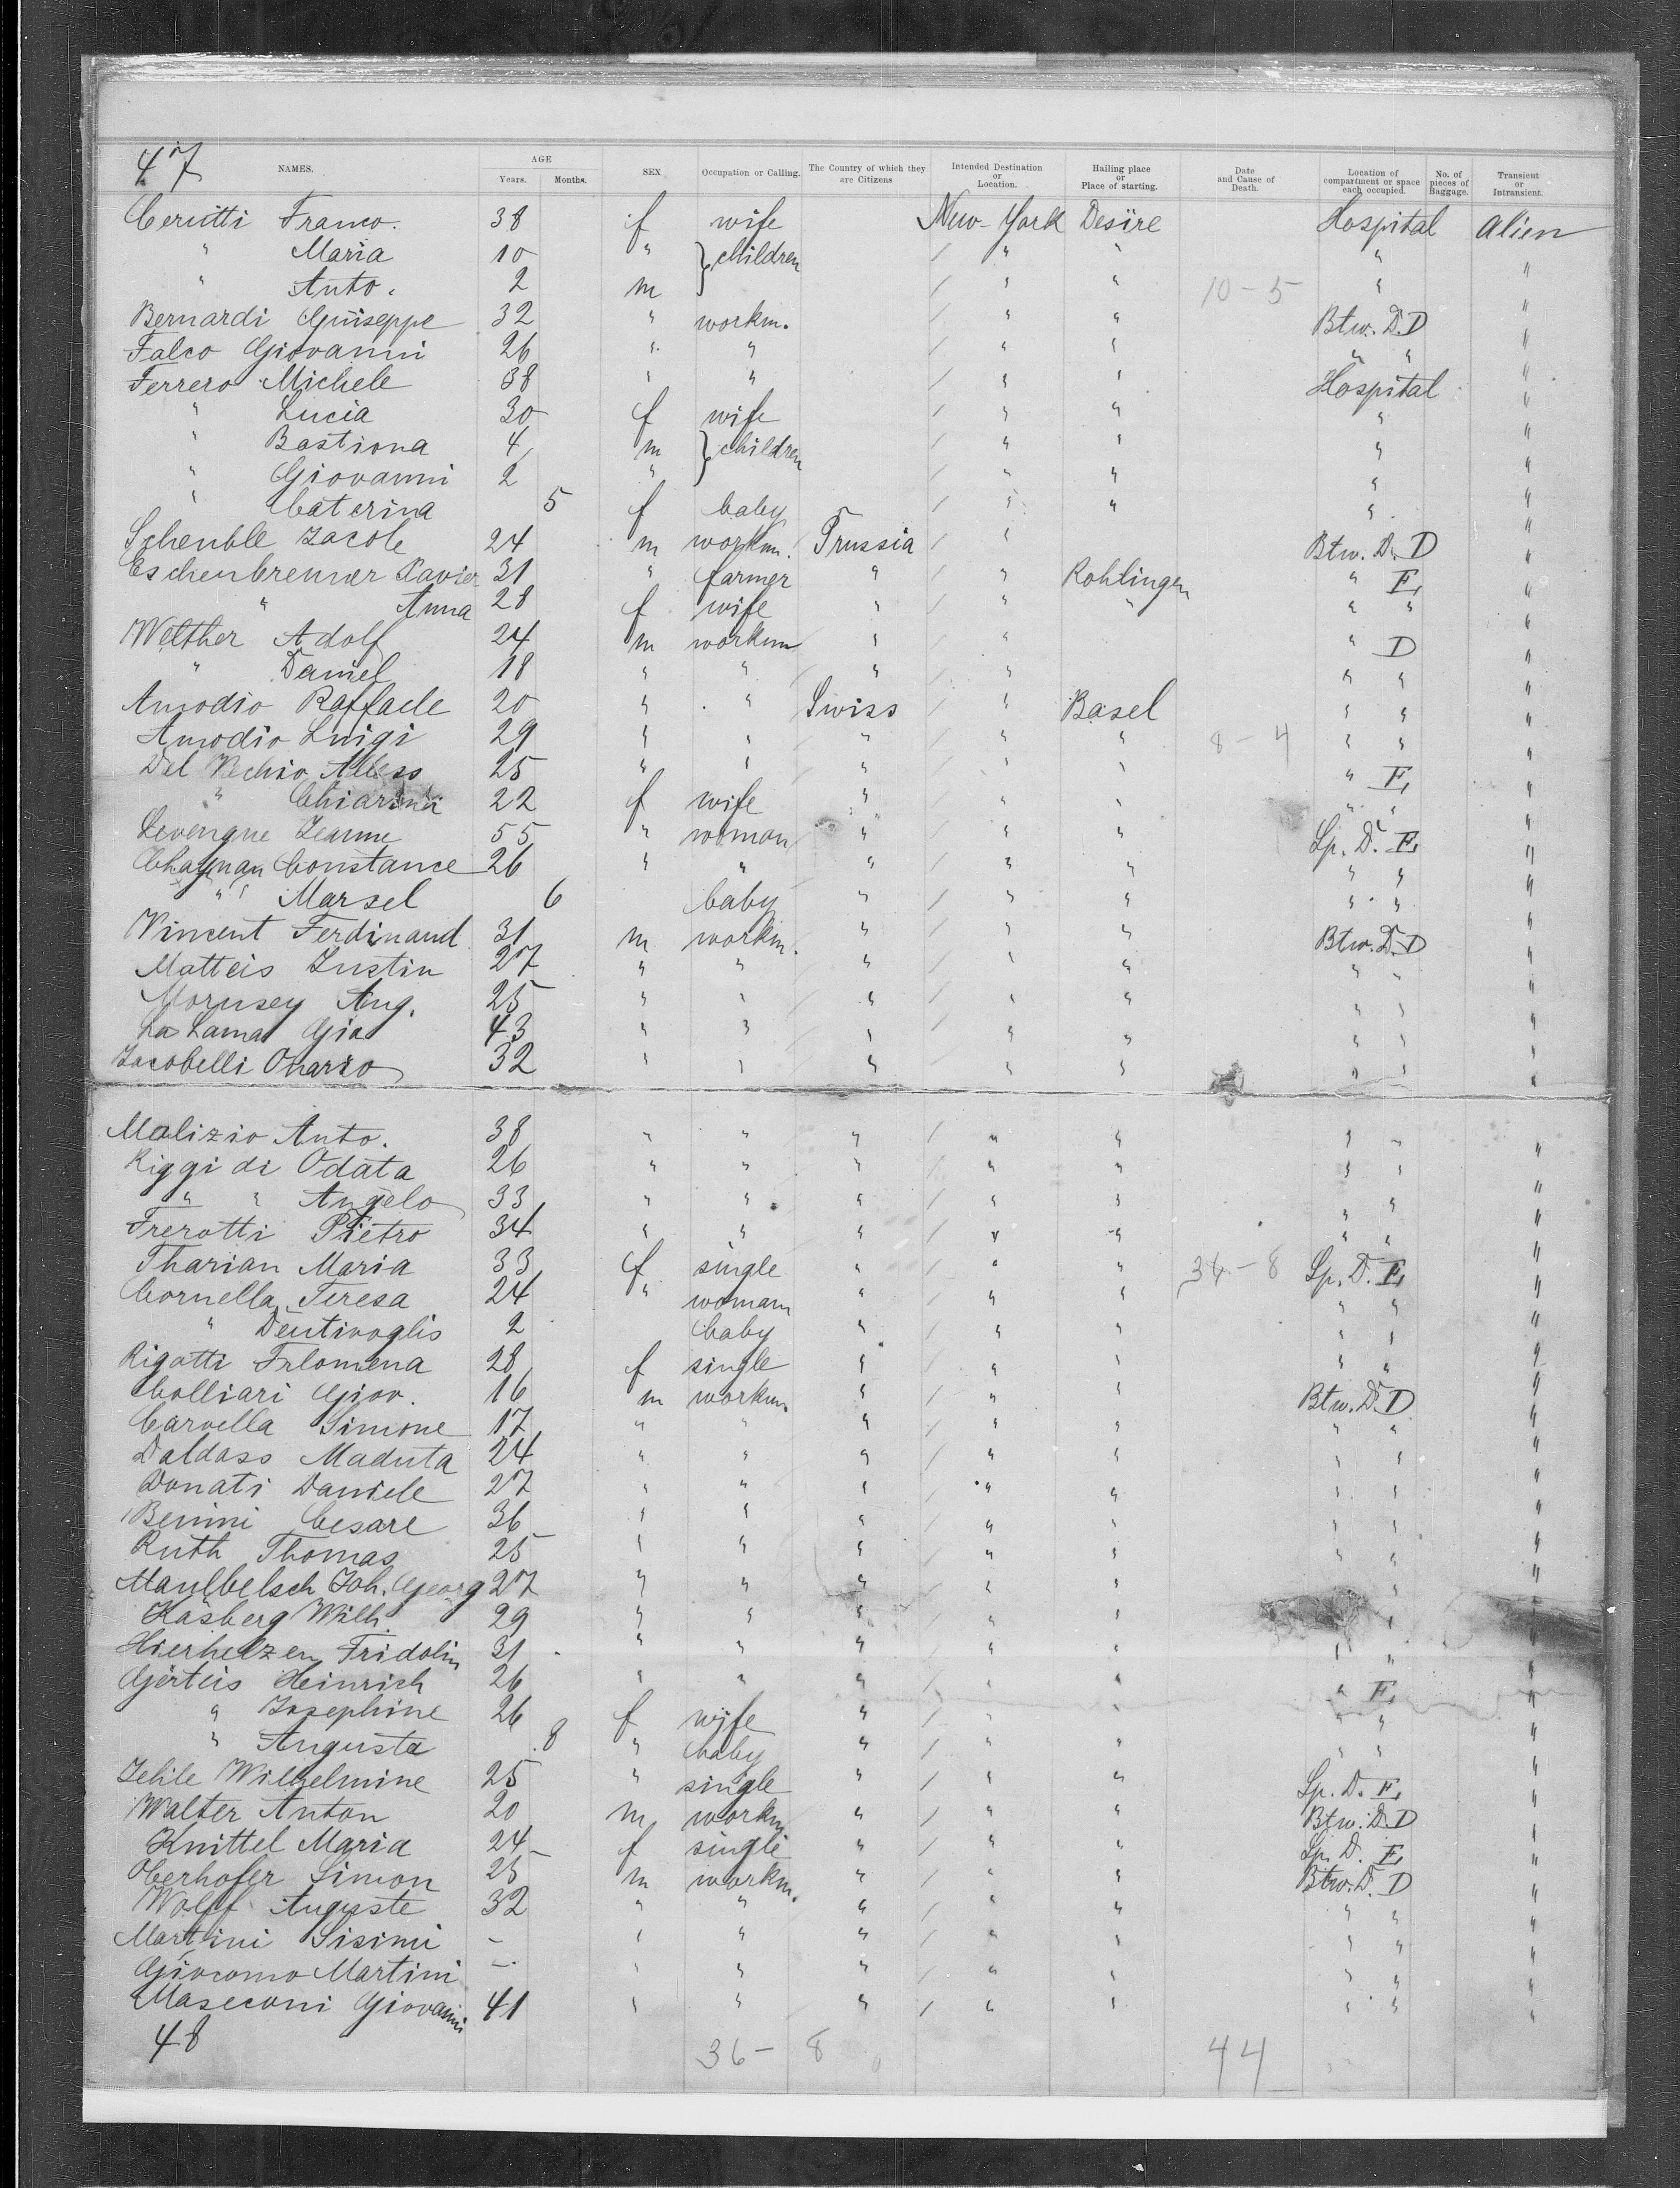 47
NAMES. AGE Years. Months. SEX Occupation or Calling. The Country of which they are Citizens Intended Destination or Location. Hailing place or Place of starting. Date and Cause of Death. Location of compartment or space each occupied. No. of pieces of Baggage. Transient or Intransient.
Cerutti Franco. 38 f wife New-York Desire Hospital Alien
" Maria 10 " } children / " " " "
" Anto. 2 m / " " 10-5 " "
Bernardi Guiseppe 32 " workm. / " " Btw. D. D "
Falco Giovanni 26 " " / " " " " "
Ferrero Michele 38 " " / " " Hospital "
" Lucia 30 f wife / " " " "
" Bastiona 4 m } children / " " " "
" Giovanni 2 " / " " " "
" Caterina 5 f baby / " " " "
Schenble Jacob 24 m workm. Prussia / " Btw. D. D "
Eschenbrenner Xavier 31 " farmer " / " Rohlingen " E, "
" Anna 28 f wife " / " " " " "
Welther Adolf 24 m workm " / " " D "
" Daniel 18 " " " / " " " "
Amodio Raffaele 20 " " Swiss / " Basel " " "
Amodio Luigi 29 " " " / " " 8-4 " " "
Del Vechio Aless 25 " " " / " " " E, "
" Chiarina 22 f wife " / " " " " "
Levengne Jeanne 55 " woman " / " " Sp. D. E, "
Chapman Constance 26 " " " / " " " " "
" Marsel 6 baby " / " " " " "
Vincent Ferdinand 31 m workm. " / " " Btw. D. D "
Matteis Justin 27 " " " / " " " " "
Mornsey Aug. 25 " " " / " " " " "
La Lama Gia 43 " " " / " " " " "
Jacobelli Onario 32 " " " / " " " " "
Malizio Anto. 38 " " " / " " " " "
Riggi di Odata 26 " " " / " " " " "
" " Angelo 33 " " " / " " " " "
Frerotti Pietro 34 " " " / " " " " "
Tharian Maria 33 f single " / " " 34-8 Sp. D. E, "
Cornella Teresa 24 " woman " / " " " " "
" Dentivoglis 2 baby " / " " " " "
Rigotti Filomena 28 f single " / " " " " "
Colliari Giov. 16 m workm. " / " " Btw. D. D "
Carvella Simone 17 " " " / " " " " "
Daldass Maduta 24 " " " / " " " " "
Donati Daniele 27 " " " / " " " " "
Benini Cesare 36 " " " / " " " " "
Ruth Thomas 25 " " " / " " " " "
Maulbelsch Joh. Georg 27 " " " / " " " "
Kasberg Wilh. 29 " " " / " " " "
Hierholzen Fridolin 31 " " " / " " " " "
Gerteis Heinrich 26 " " " / " " " E, "
" Josephine 26 f wife " / " " " " "
" Augusta 8 " baby " / " " " " "
Jehle Wilhelmine 25 " single " / " " Sp. D. E, "
Walter Anton 20 m workm " / " " Btw. D. D "
Knittel Maria 24 f single " / " " Sp. D. E, "
Oberhofer Simon 25 m workm. " / " " Btw. D. D "
Wolff Auguste 32 " " " / " " " " "
Martini Sisimi - " " " / " " " " "
Giocomo Martini - " " " / " " " " "
Maseconi Giovanni 41 " " " / " " " " "
48 36- 8 44